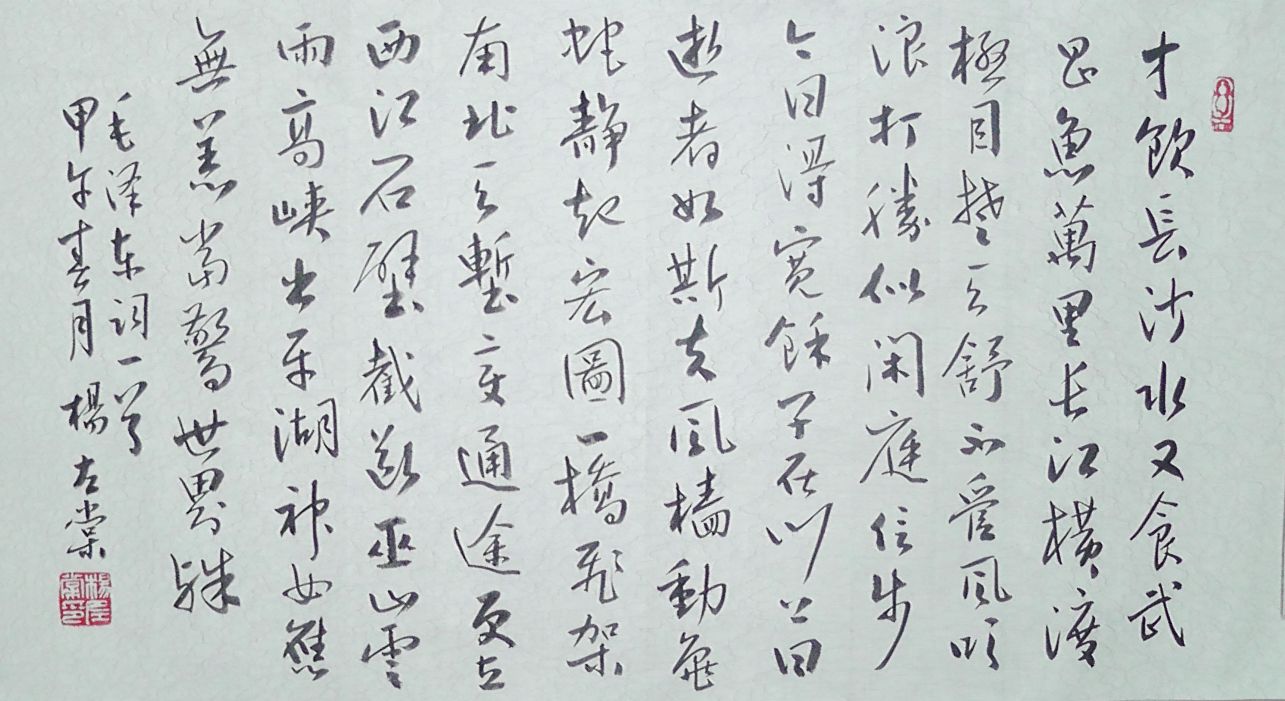 才飲長沙水又食武
昌魚萬里长江横渡
極目楚天舒不管風吹
浪打勝似闲庭信步
今日得宽馀子在川上曰
逝者如斯夫風樯動龜
蛇静起宏圖一橋飛架
南北天塹变通途更立
西江石壁截断巫山雲
雨高峡出平湖神女應
無恙當驚世界殊
毛泽东词一首
甲午春月 楊左棠
楊左棠印